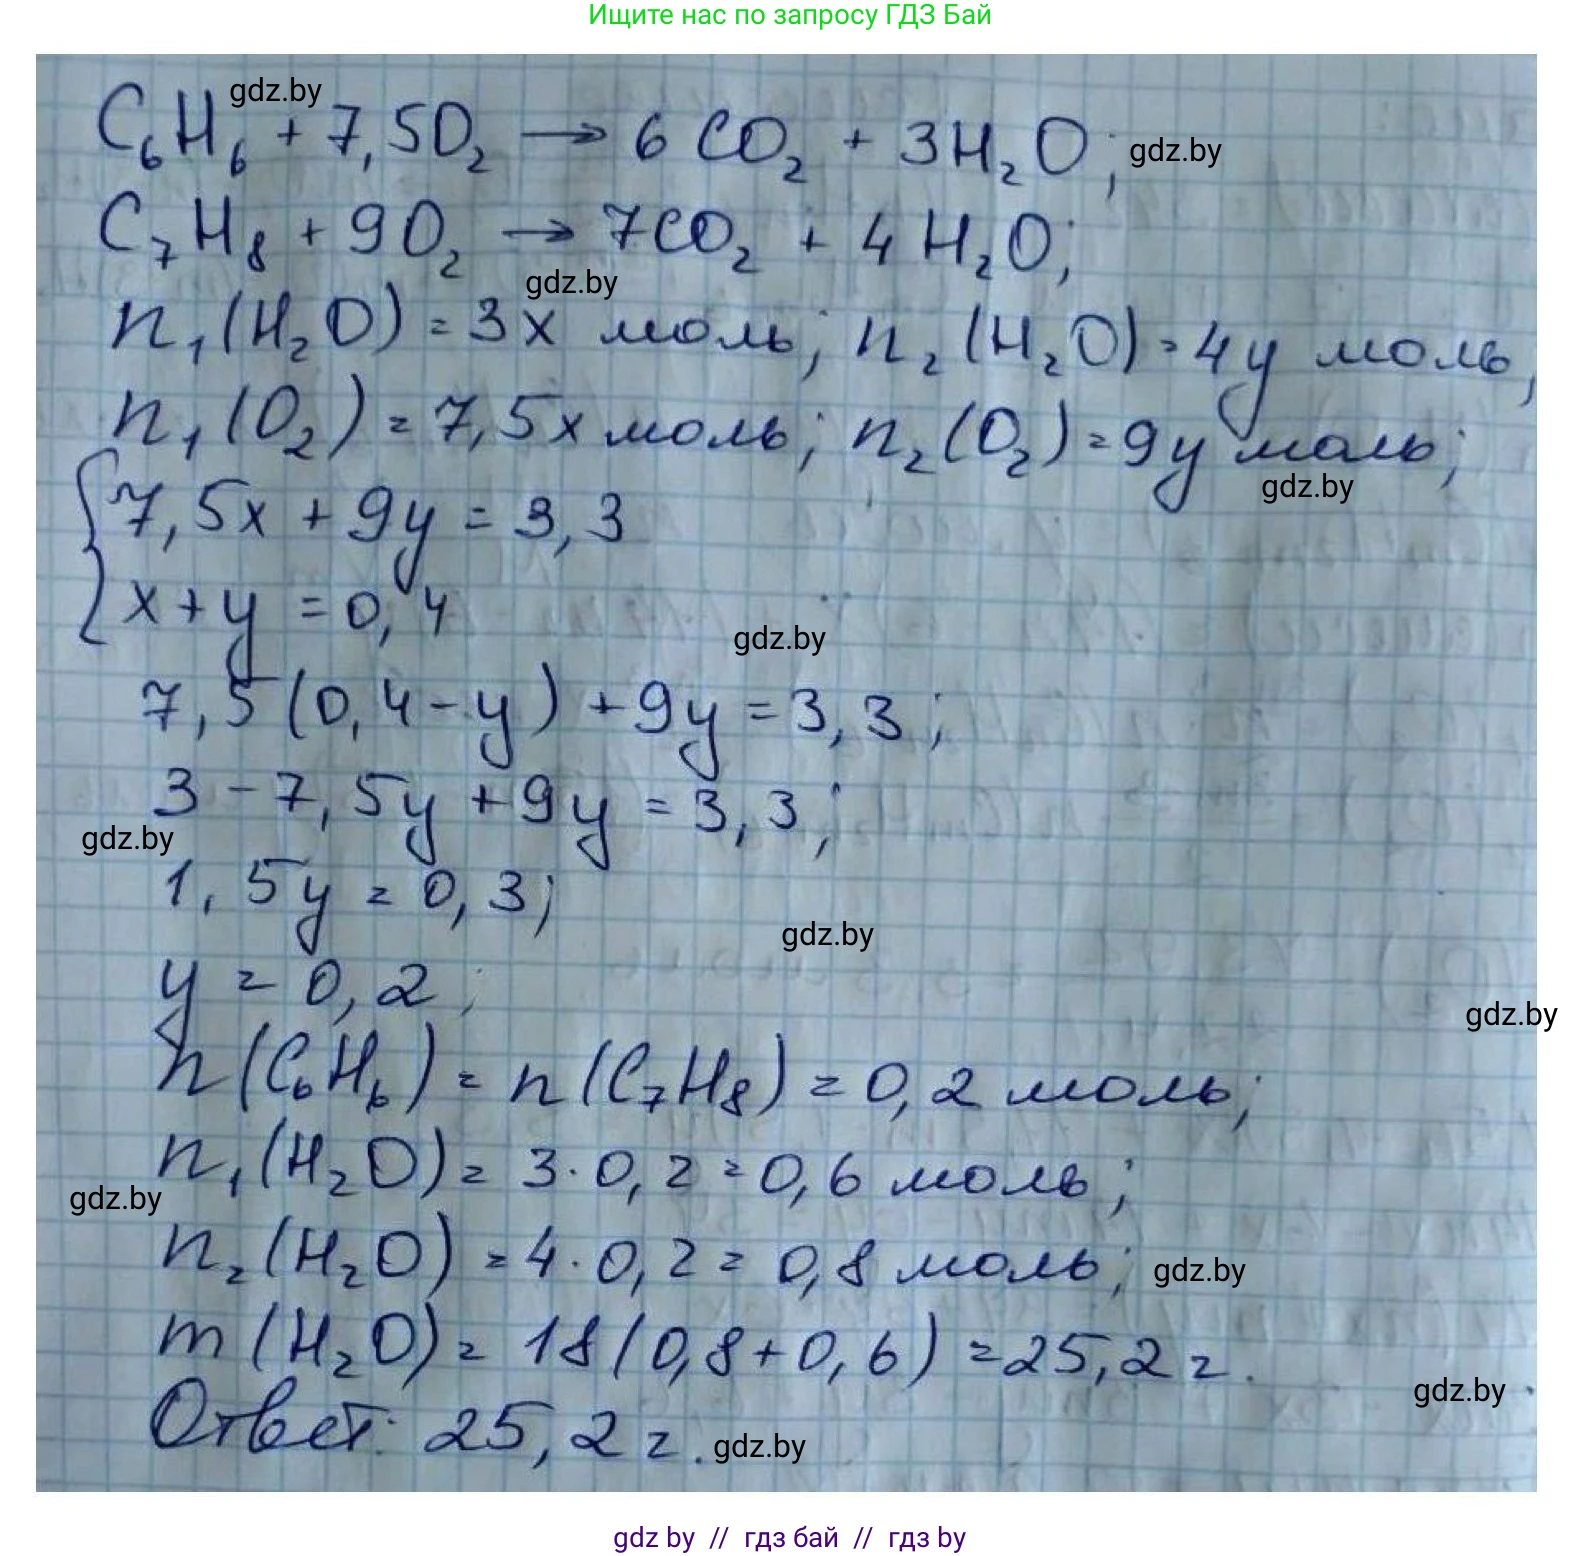 Ищите нас по запросу ГДЗ Бай
gdz.by
C₆H₆ + 7,5O₂ → 6CO₂ + 3H₂O;
gdz.by
C₇H₈ + 9O₂ → 7CO₂ + 4H₂O;
gdz.by
n₁(H₂O) = 3x моль; n₂(H₂O) = 4y моль;
n₁(O₂) = 7,5x моль; n₂(O₂) = 9y моль;
gdz.by
{7,5x + 9y = 3,3
x + y = 0,4
gdz.by
7,5(0,4 - y) + 9y = 3,3;
3 - 7,5y + 9y = 3,3;
gdz.by
1,5y = 0,3;
gdz.by
y = 0,2;
gdz.by
n(C₆H₆) = n(C₇H₈) = 0,2 моль;
n₁(H₂O) = 3·0,2 = 0,6 моль;
gdz.by
n₂(H₂O) = 4·0,2 = 0,8 моль;
gdz.by
m(H₂O) = 18(0,8+0,6) = 25,2 г.
gdz.by
Ответ: 25,2 г.
gdz.by
gdz by // гдз бай // гдз by